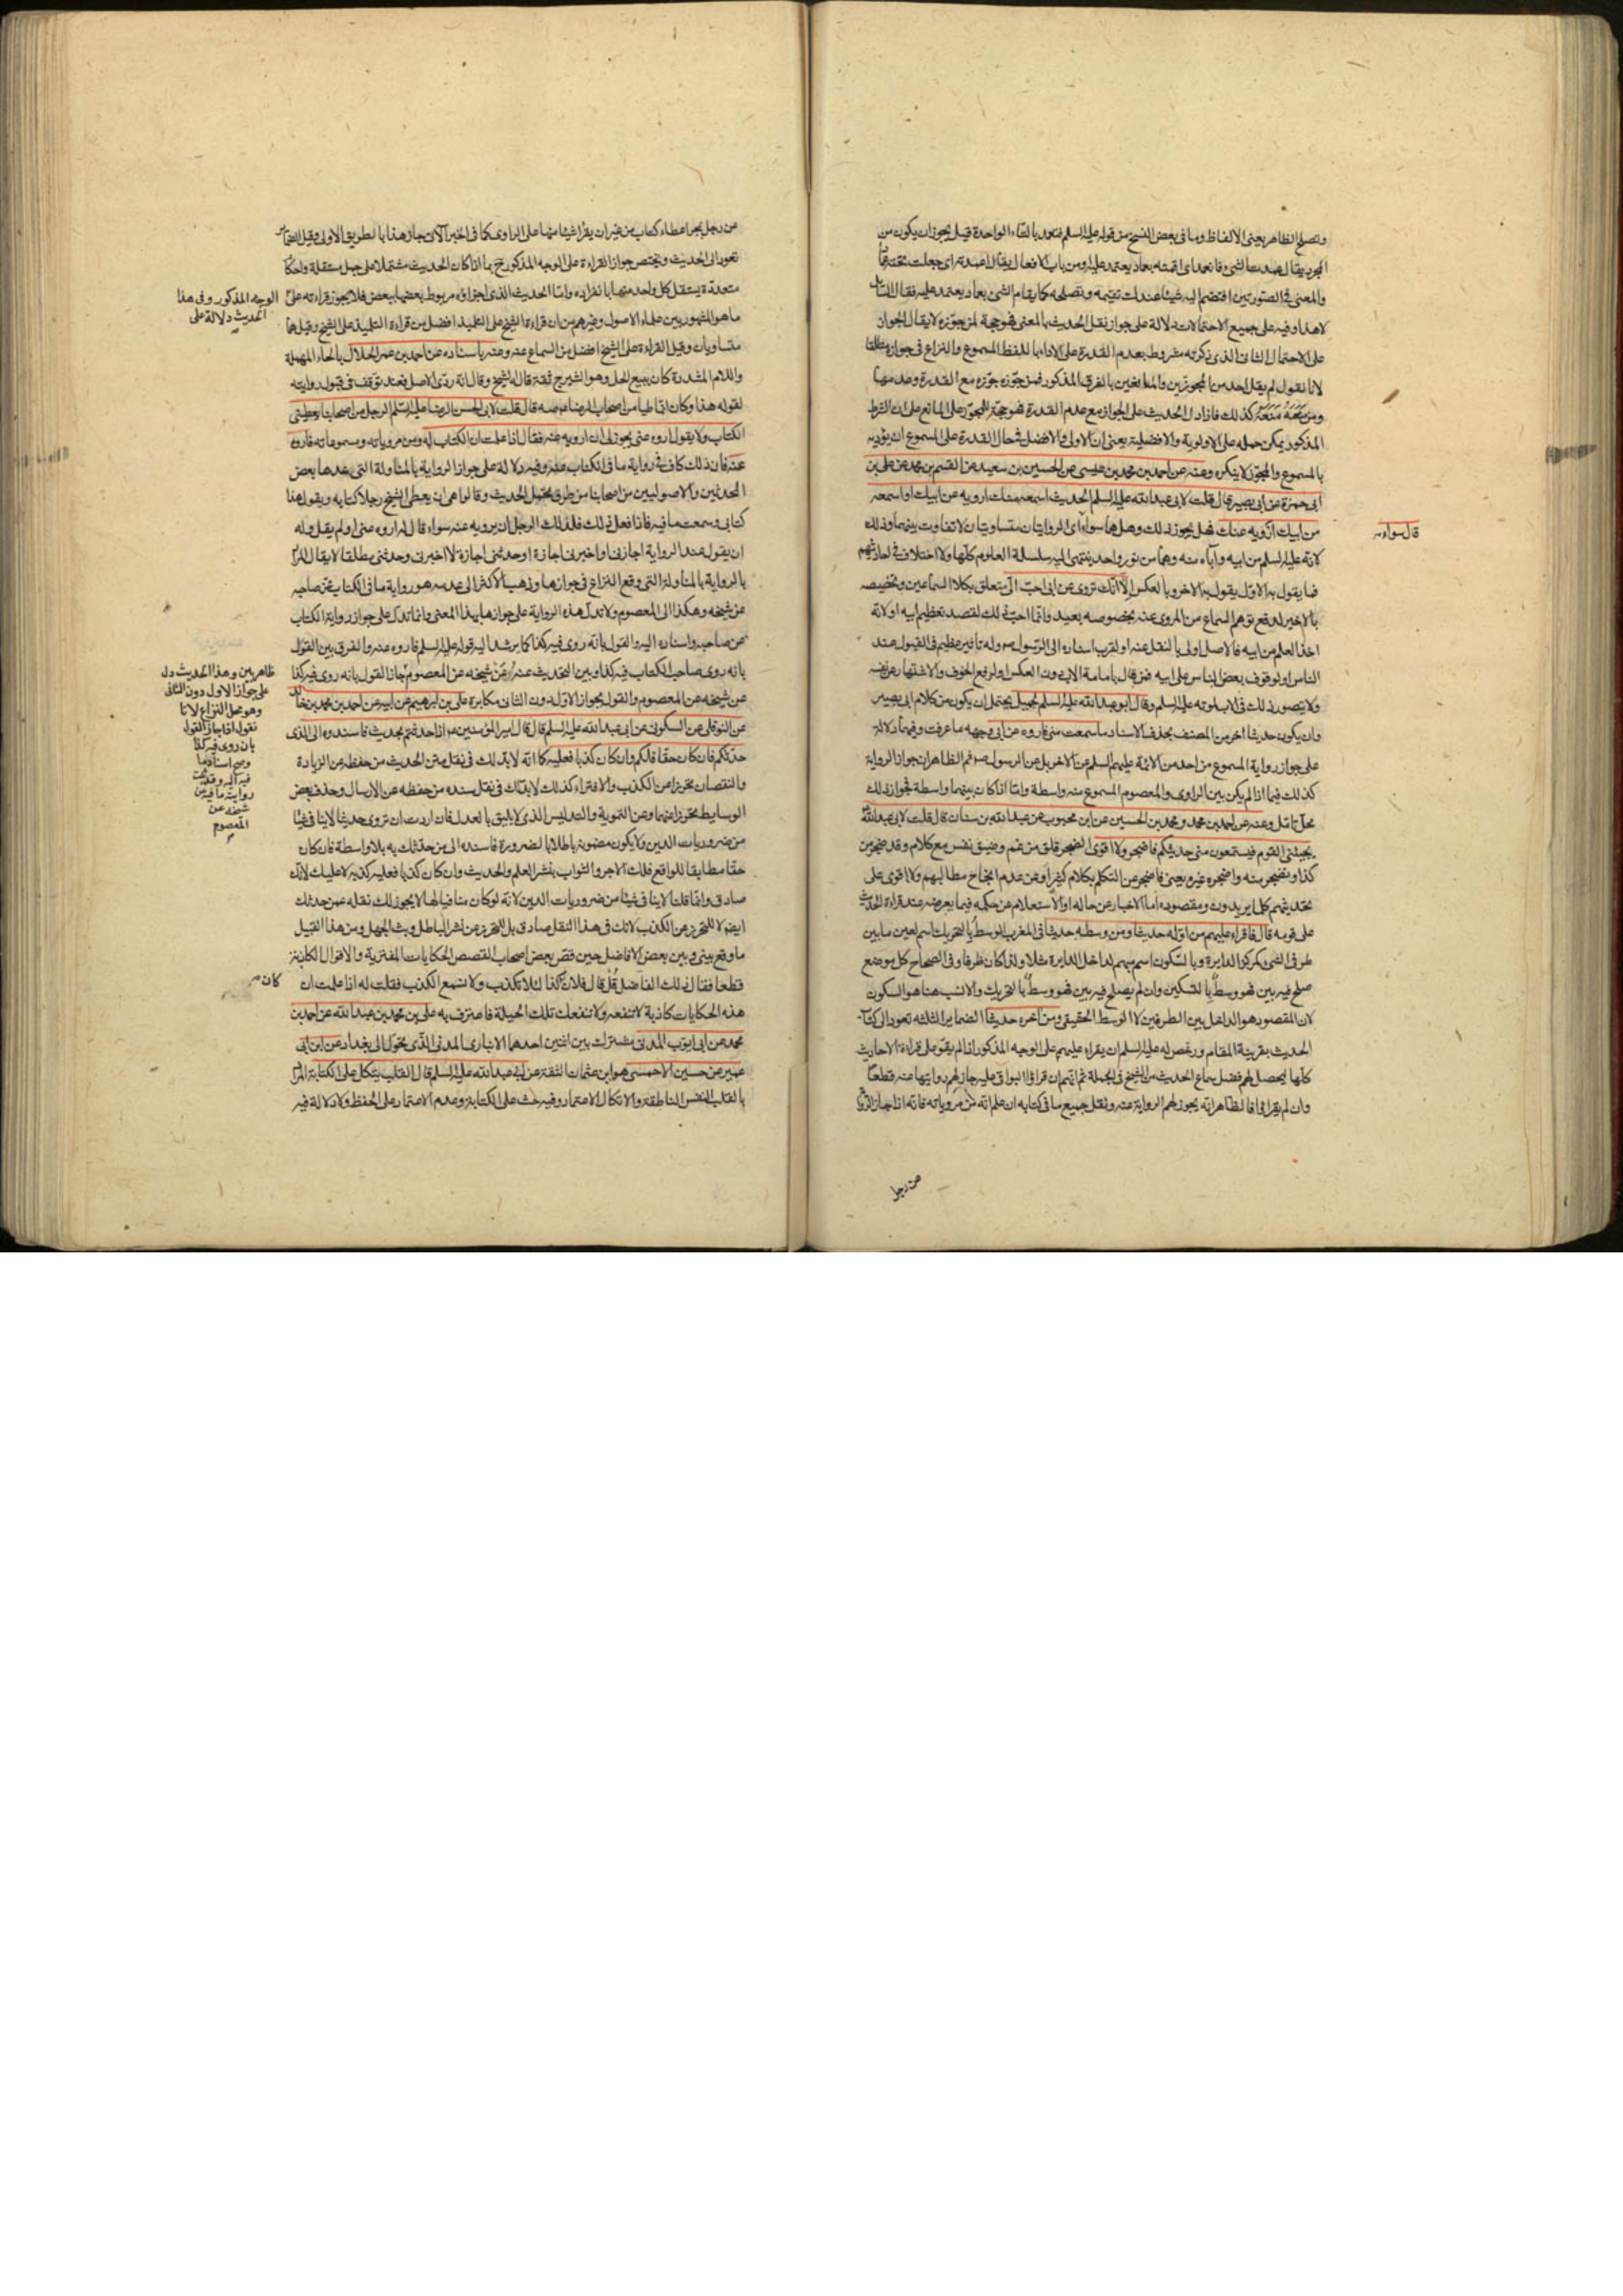 وتصلح الظاهر يعنى الالفاظ وما فى بعض النسخ من قوله عليه السلم فتعمد بالتاء الواحدة قيل يجوز ان يكون من
المجرد يقال عمدت الشئ فانعمد اى اقمته بعماد يعتمد عليه ومن باب الافعال يقال اعمدته اى جعلت تحته عمادا
والمعنى فى الصورتين افتضم اليه شيئا من عندك تقيمه وتصلحه كما يقام الشئ بعماد يعتمد عليه فقال السائل
لا هذا وفيه على جميع الاحتمالات دلالة على جواز نقل الحديث بالمعنى فهو حجة لمن جوزه لا يقال الجواز
على الاحتمال الثانى الذى ذكرته مشروط بعدم القدرة على الاداء باللفظ المسموع والنزاع فى جوازه مطلقا
لانا نقول لم يقل احد من المجوزين والمانعين بالفرق المذكور فمن جوزه جوزه مع القدرة وعدمها
ومن منعه منعه كذلك فاذا دل الحديث على الجواز مع عدم القدرة فهو حجة للمجوز على المانع على ان الشرط
المذكور يمكن حمله على الاولوية والافضلية يعنى ان الاولى والافضل فى حال القدرة على المسموع ان يؤديه
بالمسموع والمجوز لا ينكره وعنه عن احمد بن محمد بن عيسى عن الحسين بن سعيد عن القسم بن محمد عن على بن
ابى حمزة عن ابى بصير قال قلت لابى عبدالله عليه السلم الحديث اسمعه منك ارويه عن ابيك او اسمعه
من ابيك ارويه عنك فهل يجوز ذلك وهل هما سواء اى الروايتان متساويتان لا تفاوت بينهما وذلك
قال سواء
لانه عليه السلم من ابيه وآباءه منه وهما من نور واحد ينتهى اليه سلسلة العلوم كلها ولا اختلاف فى احاديثهم
فما يقول به الاول يقول به الاخر وبالعكس الا انك تروى عن ابى احب الى يتعلق بكلا السماعين وتخصيصه
بالاخير لدفع توهم السماع من المروى عنه بخصوصه بعيد وانما احب ذلك لقصد تعظيم ابيه او لانه
اخذ العلم من ابيه فالاصل اولى بالنقل عنه او لقرب اسناده الى الرسول وله تاثير عظيم فى القبول عند
الناس او لوقوف بعض الناس على ابيه فمن قال بامامة الاب دون العكس او لرفع الخوف والاشتهار عن نفسه
ولا يتصور ذلك فى الاب لموته عليه السلم وقال ابو عبدالله عليه السلم لجميل يحتمل ان يكون من كلام ابى بصير
وان يكون حديثا اخر من المصنف بحذف الاسناد ما سمعت منى فاروه عن ابى وجهه ما عرفت وفيهما دلالة
على جواز رواية المسموع من احد من الائمة عليهم السلم عن الاخر بل عن الرسول ثم الظاهر ان جواز الرواية
كذلك فيما اذا لم يكن بين الراوى والمعصوم المسموع منه واسطة واما اذا كان بينهما واسطة فجواز ذلك
محل تامل وعنه عن احمد بن محمد ومحمد بن الحسين عن ابن محبوب عن عبدالله بن سنان قال قلت لابى عبدالله
يجيئنى القوم فيستمعون منى حديثكم فاضجر ولا اقوى الضجر قلق من غم وضيق نفس مع كلام وقد ضجر من
كذا وتضجر منه واضجره غيره يعنى فاضجر عن التكلم بكلام كثير او عن عدم انجاح مطالبهم ولا اقوى على
تحديثهم كلما يريدون ومقصوده اما الاخبار عن حاله او الاستعلام عن حكمه فيما يعرضه عند قراءة الحديث
على قومه قال فاقراء عليهم من اوله حديثا ومن وسطه حديثا فى المغرب الوسط بالتحريك اسم لعين ما بين
طرفى الشئ كمركز الدايرة وبالسكون اسم مبهم لداخل الدايرة مثلا ولذا كان ظرفا وفى الصحاح كل موضع
صلح فيه بين فهو وسط بالتسكين وان لم يصلح فيه بين فهو وسط بالتحريك والانسب هنا هو السكون
لان المقصود هو الداخل بين الطرفين لا الوسط الحقيقى ومن آخره حديثا الضماير الثلثه تعود الى كتاب
الحديث بقرينة المقام ورخص له عليه السلم ان يقراء عليهم على الوجه المذكور اذا لم يقو على قراءة الاحاديث
كلها ليحصل لهم فضل سماع الحديث من الشيخ فى الجملة ثم انهم ان قراؤا البواقى عليه جاز لهم روايتها عنه قطعا
وان لم يقراؤا فالظاهر انه يجوز لهم الرواية عنه ونقل جميع ما فى كتابه ان علم انه من مروياته فانه اذا جاز الرواية
عن رجل
عن رجل بمجرد اعطاء كتاب من غير ان يقرا شيئا منها على الراوى كما فى الخبر الآتى جاز هذا بالطريق الاولى وقيل الضماير
تعود الى الحديث ويختص جواز القراءة على الوجه المذكور ح بما اذا كان الحديث مشتملا على جمل مستقلة واحكام
متعددة يستقل كل واحد منها بانفراده واما الحديث الذى اجزاؤه مربوط بعضها ببعض فلا يجوز قراءته على
الوجه المذكور وفى هذا
الحديث دلالة على
ما هو المشهور بين علماء الاصول وغيرهم من ان قراءة الشيخ على التلميذ افضل من قراءة التلميذ على الشيخ وقيل هما
متساويان وقيل القراءة على الشيخ افضل من السماع عنه وعنه باسناده عن احمد بن عمر الحلال بالحاء المهملة
واللام المشددة كان يبيع الحل وهو الشيرج ثقة قاله الشيخ وقال انه ردى الاصل فعند توقف فى قبول روايته
لقوله هذا وكان انماطيا من اصحاب الرضا قال قلت لابى الحسن الرضا عليه السلم الرجل من اصحابنا يعطينى
الكتاب ولا يقول اروه عنى يجوز لى ان ارويه عنه فقال اذا علمت ان الكتاب له ومن مروياته ومسموعاته فاروه
عنه فان ذلك كاف فى رواية ما فى الكتاب عنه وفيه دلالة على جواز الرواية بالمناولة التى يعدها بعض
المحدثين والاصوليين من اصحابنا من طرق تحمل الحديث وقالوا هى ان يعطى الشيخ رجلا كتابه ويقول هذا
كتابى وسمعت ما فيه فاذا فعل ذلك فلذلك الرجل ان يرويه عنه سواء قال له اروه عنى او لم يقل وله
ان يقول عند الرواية اجازنى او اخبرنى اجازة او حدثنى اجازة لا اخبرنى وحدثنى مطلقا لا يقال المراد
بالرواية بالمناولة التى وقع النزاع فى جوازها وذهب الاكثر الى عدمه هو رواية ما فى الكتاب عن صاحبه
عن شيخه وهكذا الى المعصوم ولا تدل هذه الرواية على جوازها بهذا المعنى وانما تدل على جواز رواية الكتاب
عن صاحبه واسناده اليه والقول بانه روى فيه كذا كما يرشد اليه قوله عليه السلم فاروه عنه والفرق بين القول
بانه روى صاحب الكتاب فيه كذا وبين التحديث عنه عن شيخه عن المعصوم جاز القول بانه روى فيه كذا
ظاهر بين وهذا الحديث دل
على جواز الاول دون الثانى
وهو محل النزاع لانا
نقول اذا جاز القول
بان روى فيه كذا
وصح اسناد ما
فيه اليه وقد
رواية ما فيه عن
شيخه عن
المعصوم
عن شيخه عن المعصوم والقول بجواز الاول دون الثانى مكابرة على بن ابرهيم عن ابيه عن احمد بن محمد بن خالد
عن النوفلى عن السكونى عن ابى عبدالله عليه السلم قال قال امير المؤمنين اذا حدثتم بحديث فاسندوه الى الذى
حدثكم فان كان حقا فلكم وان كان كذبا فعليه كما انه لابد لك فى نقل متن الحديث من حفظه عن الزيادة
والنقصان تحرزا من الكذب والافتراء كذلك لابد لك فى نقل سنده من حفظه عن الارسال وحذف بعض
الوسايط تحرزا عنهما وعن التموية والتدليس الذى لا يليق بالعدل فان اردت ان تروى حديثا لا ينافى شيئا
من ضروريات الدين ولا يكون مضمونه باطلا بالضرورة فاسنده الى من حدثك به بلا واسطة فان كان
حقا مطابقا للواقع فلك الاجر والثواب بنشر العلم والحديث وان كان كذبا فعليه كذبه لا عليك لانك
صادق وانما قلنا لا ينافى شيئا من ضروريات الدين لانه لو كان منافيا لها لا يجوز لك نقله عمن حدثك
ايضا لا للتحرز عن الكذب لانك فى هذا النقل صادق بل للتحرز عن نشر الباطل وبث الجهل ومن هذا القبيل
ما وقع بينى وبين بعض الافاضل حين قص بعض اصحاب القصص الحكايات المفترية والاقوال الكاذبة
قطعا فقال ذلك الفاضل قل قال فلان كذا لئلا تكذب ولا نسمع الكذب فقلت له اذا علمت ان
كان
هذه الحكايات كاذبة لا تنفعه ولا تنفعك تلك الحيلة فاعترف به على بن محمد بن عبدالله عن احمد بن
محمد عن ابى ايوب المدنى مشترك بين اثنين احدهما الانبارى المدنى الذى تحول الى بغداد عن ابن ابى
عمير عن حسين الاحمسى هو ابن عثمان الثقة عن ابى عبدالله عليه السلم قال القلب يتكل على الكتابة المراد
بالقلب النفس الناطقة والاتكال الاعتماد وفيه حث على الكتابة وعدم الاعتماد على الحفظ ولا دلالة فيه